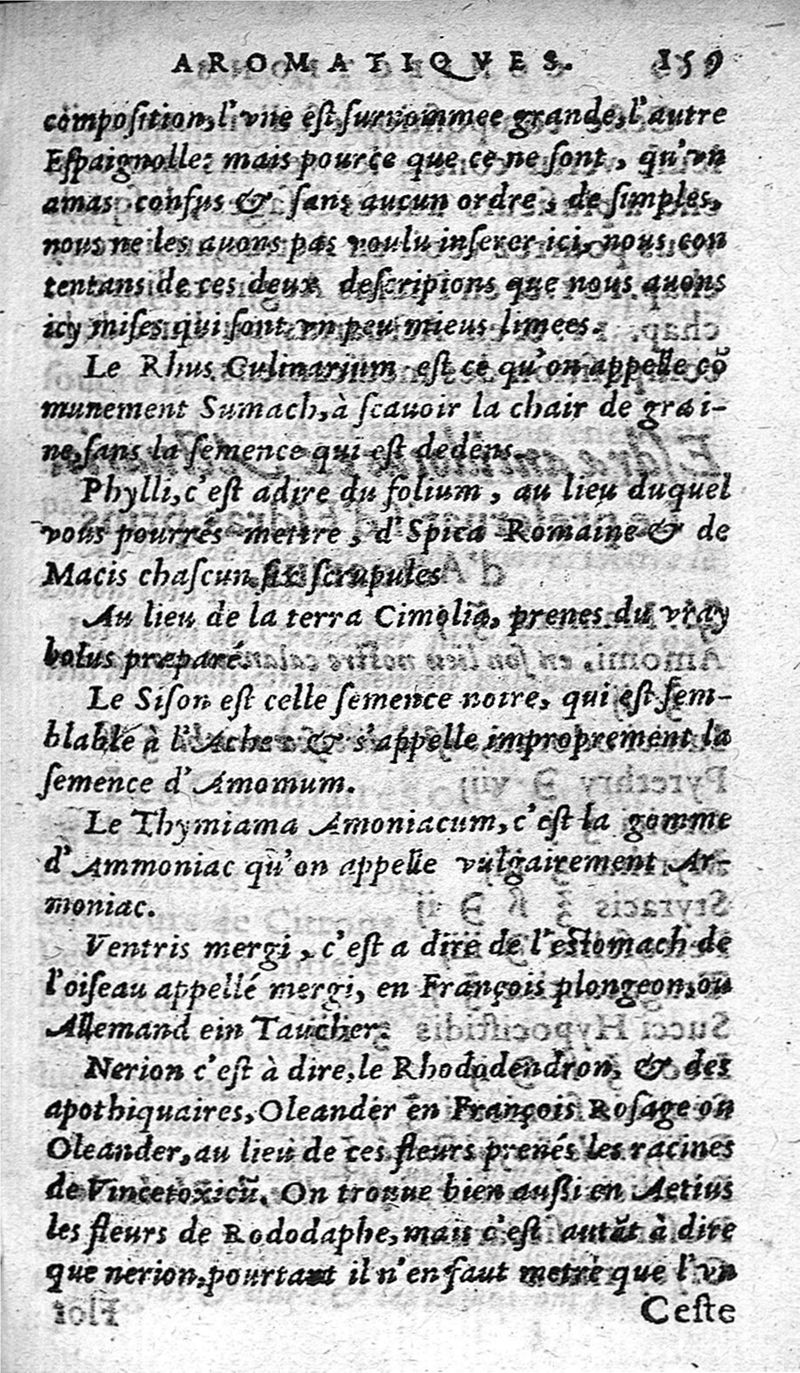 AROMATIQVES. 159
composition, l'vne est surnommee grande, l'autre
Espaignolle: mais pource que ce ne sont, qu'vn
amas confus & sans aucun ordre, de simples,
nous ne les auons pas voulu inserer ici, nous con
tentans de ces deux descripions que nous auons
icy mises qui sont vn peu mieus limees.
Le Rhus Culinarium est ce qu'on appelle cõ
munement Sumach, à scauoir la chair de grai-
ne, sans la semence qui est dedens.
Phylli, c'est adire du folium, au lieu duquel
vous pourrés mettre, d'Spica Romaine & de
Macis chascun six scrupules
Au lieu de la terra Cimolia, prenes du vray
bolus preparé.
Le Sison est celle semence noire, qui est sem-
blable à l'Ache: & s'appelle improprement la
semence d'Amomum.
Le Thymiama Amoniacum, c'est la gomme
d'Ammoniac qu'on appelle vulgairement Ar-
moniac.
Ventris mergi, c'est a dire de l'estomach de
l'oiseau appellé mergi, en François plongeon, ou
Allemand ein Taucher.
Nerion c'est à dire, le Rhododendron, & des
apothiquaires, Oleander en François Rosage ou
Oleander, au lieu de ces fleurs prenés les racines
de Vincetoxicũ. On trouue bien aussi en Aetius
les fleurs de Rododaphe, mais c'est autãt à dire
que nerion, pourtant il n'en faut metre que l'vn
Ceste